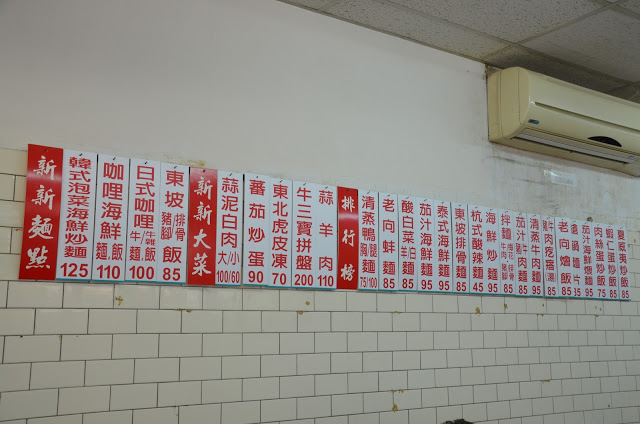 新新麵點
韓式泡菜海鮮炒麵 125
咖哩海鮮麵/飯 110
日式咖哩牛麵/雞飯 100
東坡豬腳/排骨飯 85
新新大菜
蒜泥白肉大/小 100/60
番茄炒蛋 90
東北虎皮凍 70
牛三寶拼盤 200
蒜羊肉 110
排行榜
清蒸鴨腿麵 75/100
老向蚌麵 85
酸白菜羊/白肉麵 85
茄汁海鮮麵 95
泰式海鮮麵 95
東坡排骨麵 85
杭式酸辣麵 45
海鮮炒麵 95
拌麵 85
茄汁牛肉麵 85
清蒸牛肉麵 95
老向燴飯 85
茄汁海鮮燴麵 95
肉絲蛋炒飯 75
蝦仁蛋炒飯 85
夏威夷炒飯 85